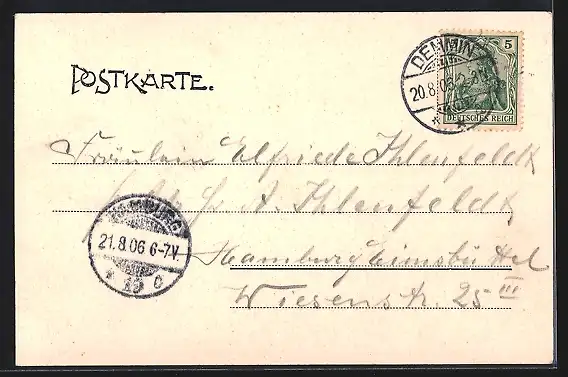 POSTKARTE.
DEMMIN
20.8.06
5
DEUTSCHES REICH
Fräulein Elfriede Ihlenfeldt
Fr A. Ihlenfeldt
HAMBURG
21.8.06 6-7V.
* 19 c
Hamburg Eimsbüttel
Wiesenstr. 25 III